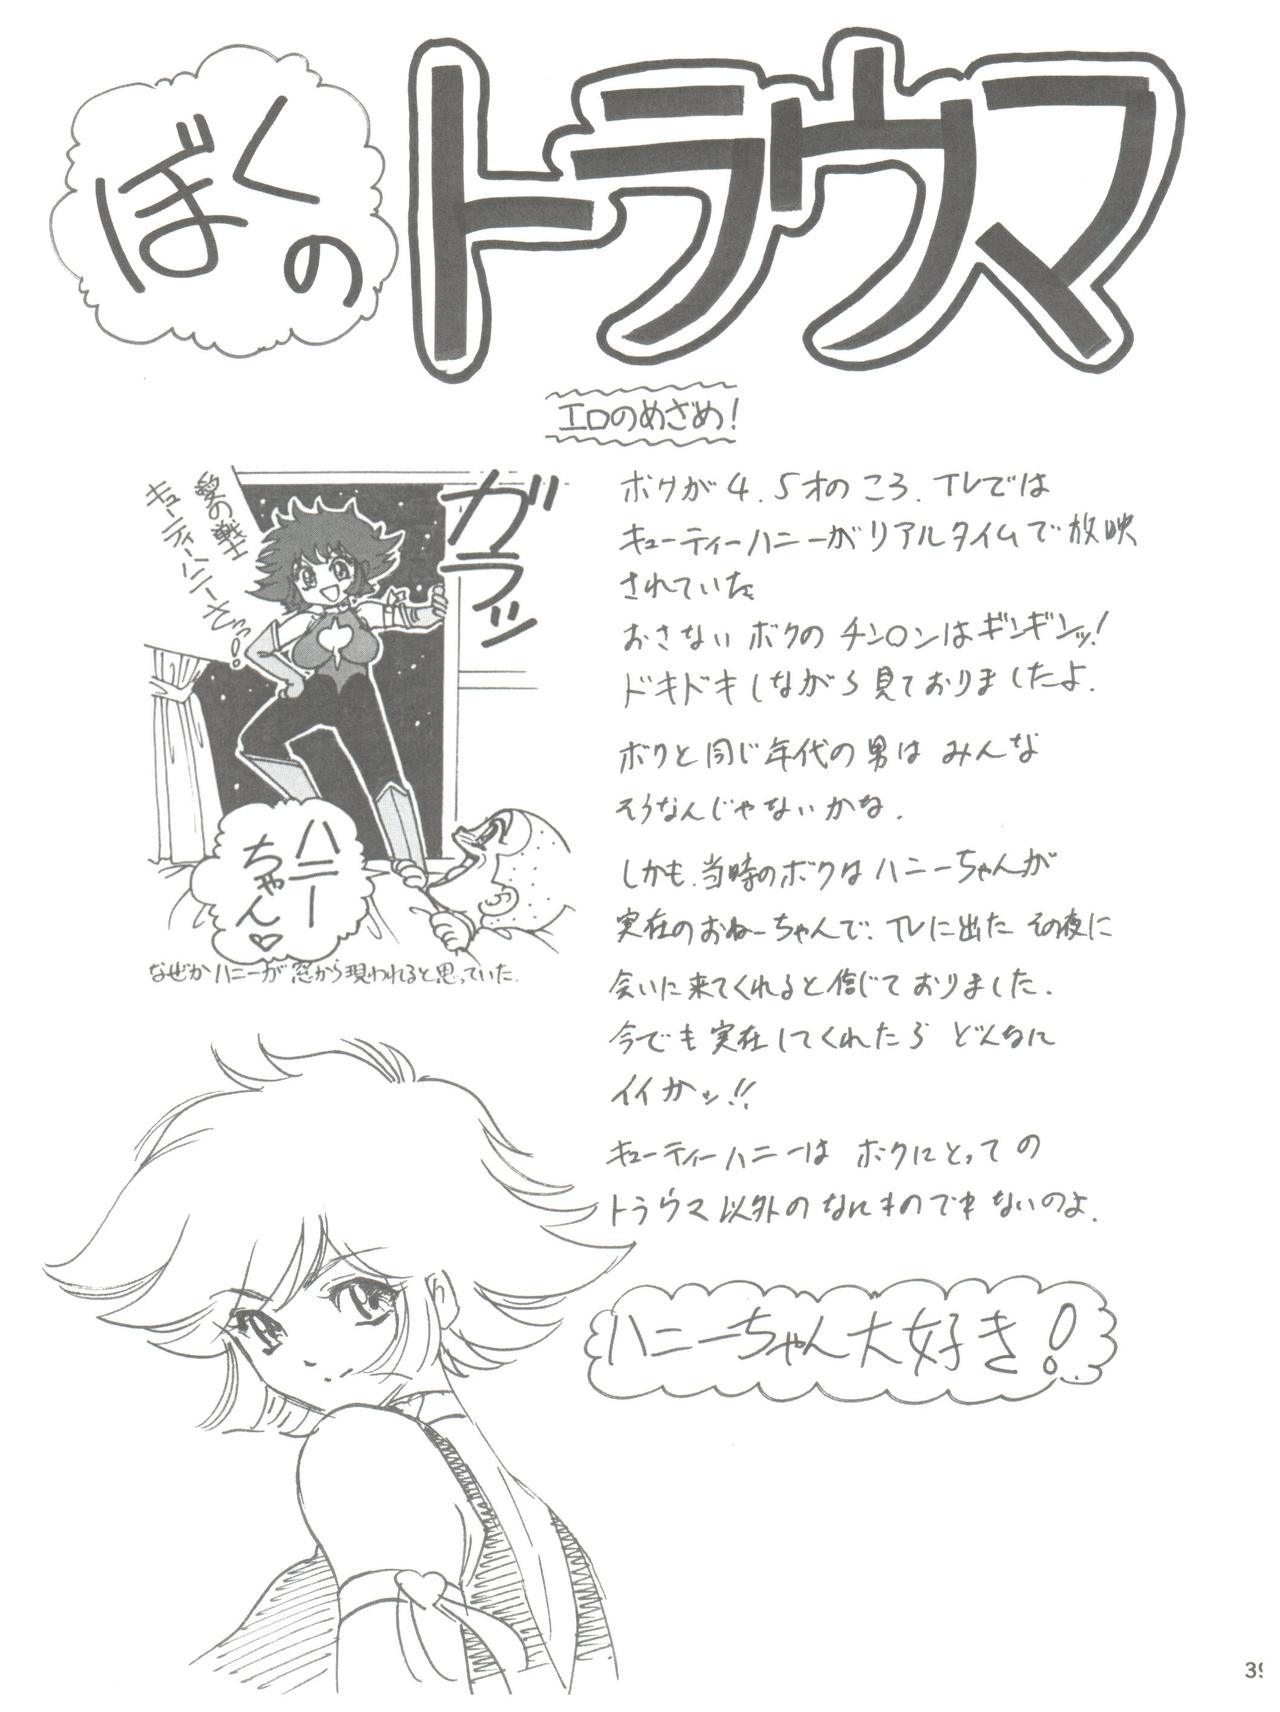 ぼくの
トラウマ
エロのめざめ!
愛の戦士
キューティーハニーさっ!!
ガラッ
ハニー
ちゃん♡
なぜかハニーが窓から現われると思っていた.
ボクが4.5才のころ.TVでは
キューティーハニーがリアルタイムで放映
されていた
おさないボクのチン○ンはギンギンッ!
ドキドキしながら見ておりましたよ.
ボクと同じ年代の男はみんな
そうなんじゃないかな.
しかも.当時のボクはハニーちゃんが
実在のおねーちゃんで.TVに出たその夜に
会いに来てくれると信じておりました.
今でも実在してくれたらどんなに
イイかッ!!
キューティーハニーはボクにとっての
トラウマ以外のなにものでもないのよ.
ハニーちゃん大好き!
39